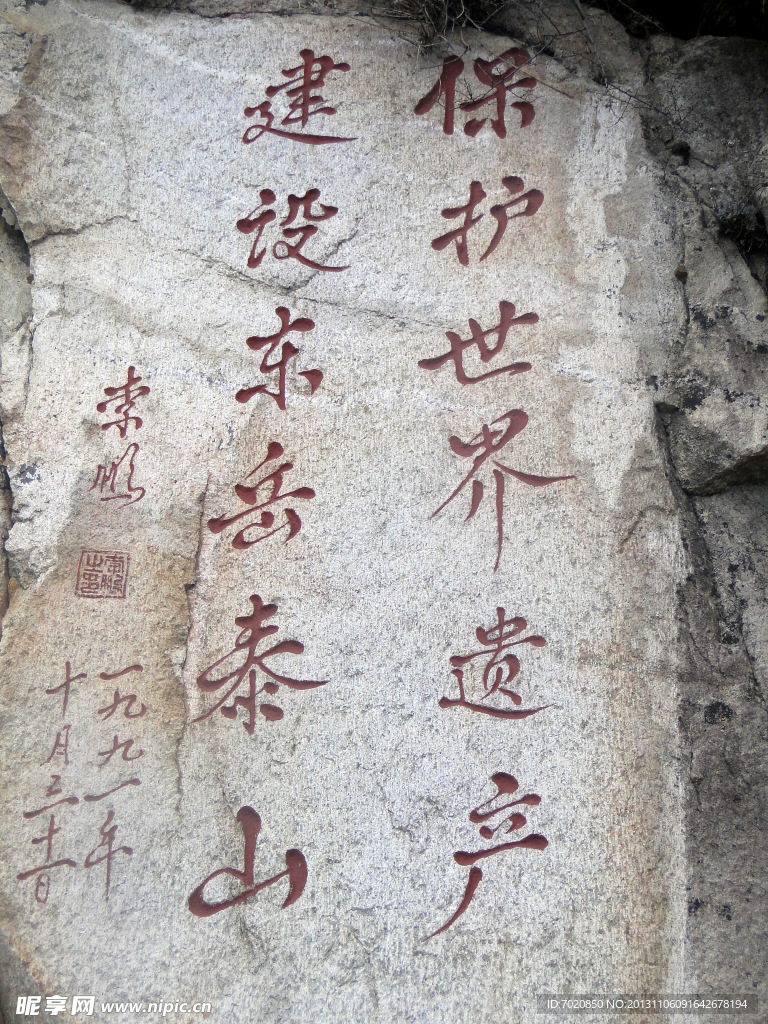 保护世界遗产
建设东岳泰山
索鹏
一九九一年
十月三十一日
昵享网 www.nipic.cn
ID:7020850 NO:20131106091642678194